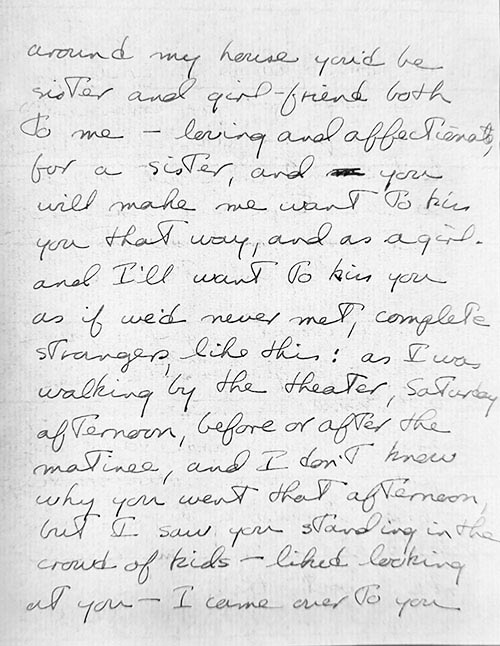 around my house you'd be
sister and girl-friend both
to me – loving and affectionate,
for a sister, and you
will make me want to kiss
you that way, and as a girl.
and I'll want to kiss you
as if we'd never met, complete
strangers, like this: as I was
walking by the theater, Saturday
afternoon, before or after the
matinee, and I don't know
why you went that afternoon,
but I saw you standing in the
crowd of kids – liked looking
at you – I came over to you